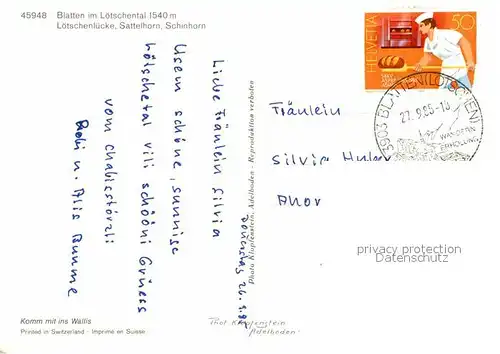 45948 Blatten im Lötschental 1540 m
Lötschenlücke, Sattelhorn, Schinhorn
Donnerstag 26.9.85
Liebe Fräulein Silvia
Usem schöne, sunnige
Lötschetal vili schööni Grüess
vom
u.
Komm mit ins Wallis
Printed in Switzerland · Imprimé en Suisse
Photo Klopfenstein, Adelboden · Reproduktion verboten
Phot Klopfenstein
Adelboden
HELVETIA 50
3903 BLATTEN (LÖTSCHEN)
27.9.85-10
WANDERN
ERHOLUNG
Fräulein
Silvia Huber
privacy protection
Datenschutz